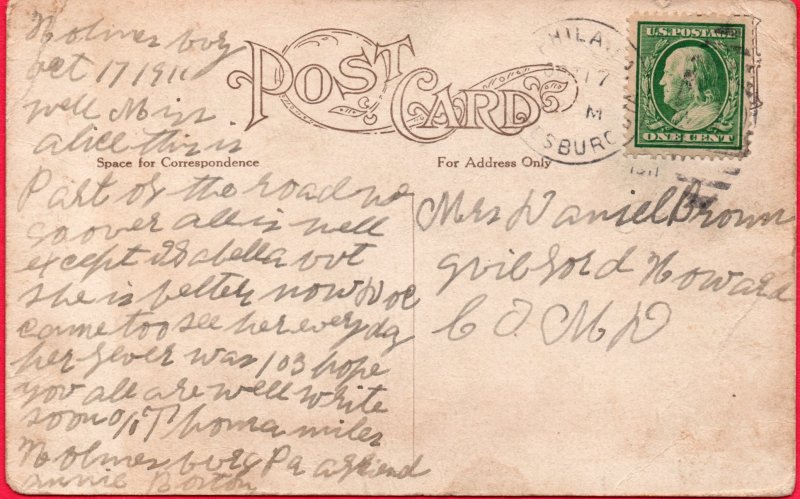 Holmesburg
Oct 17 1911
well Miss
alice this is
Part of the road we
go over all is well
except Isabella but
she is better now Doc
came too see her every day
her fever was 103 hope
you all are well write
soon Thomas miles
Holmesburg Pa a friend
annie Boston
POST CARD
Space for Correspondence
For Address Only
PHILA
17
M
ESBURG
1911
U.S. POSTAGE
ONE CENT
Mrs Daniel Brown
guilford Howard
CO MD